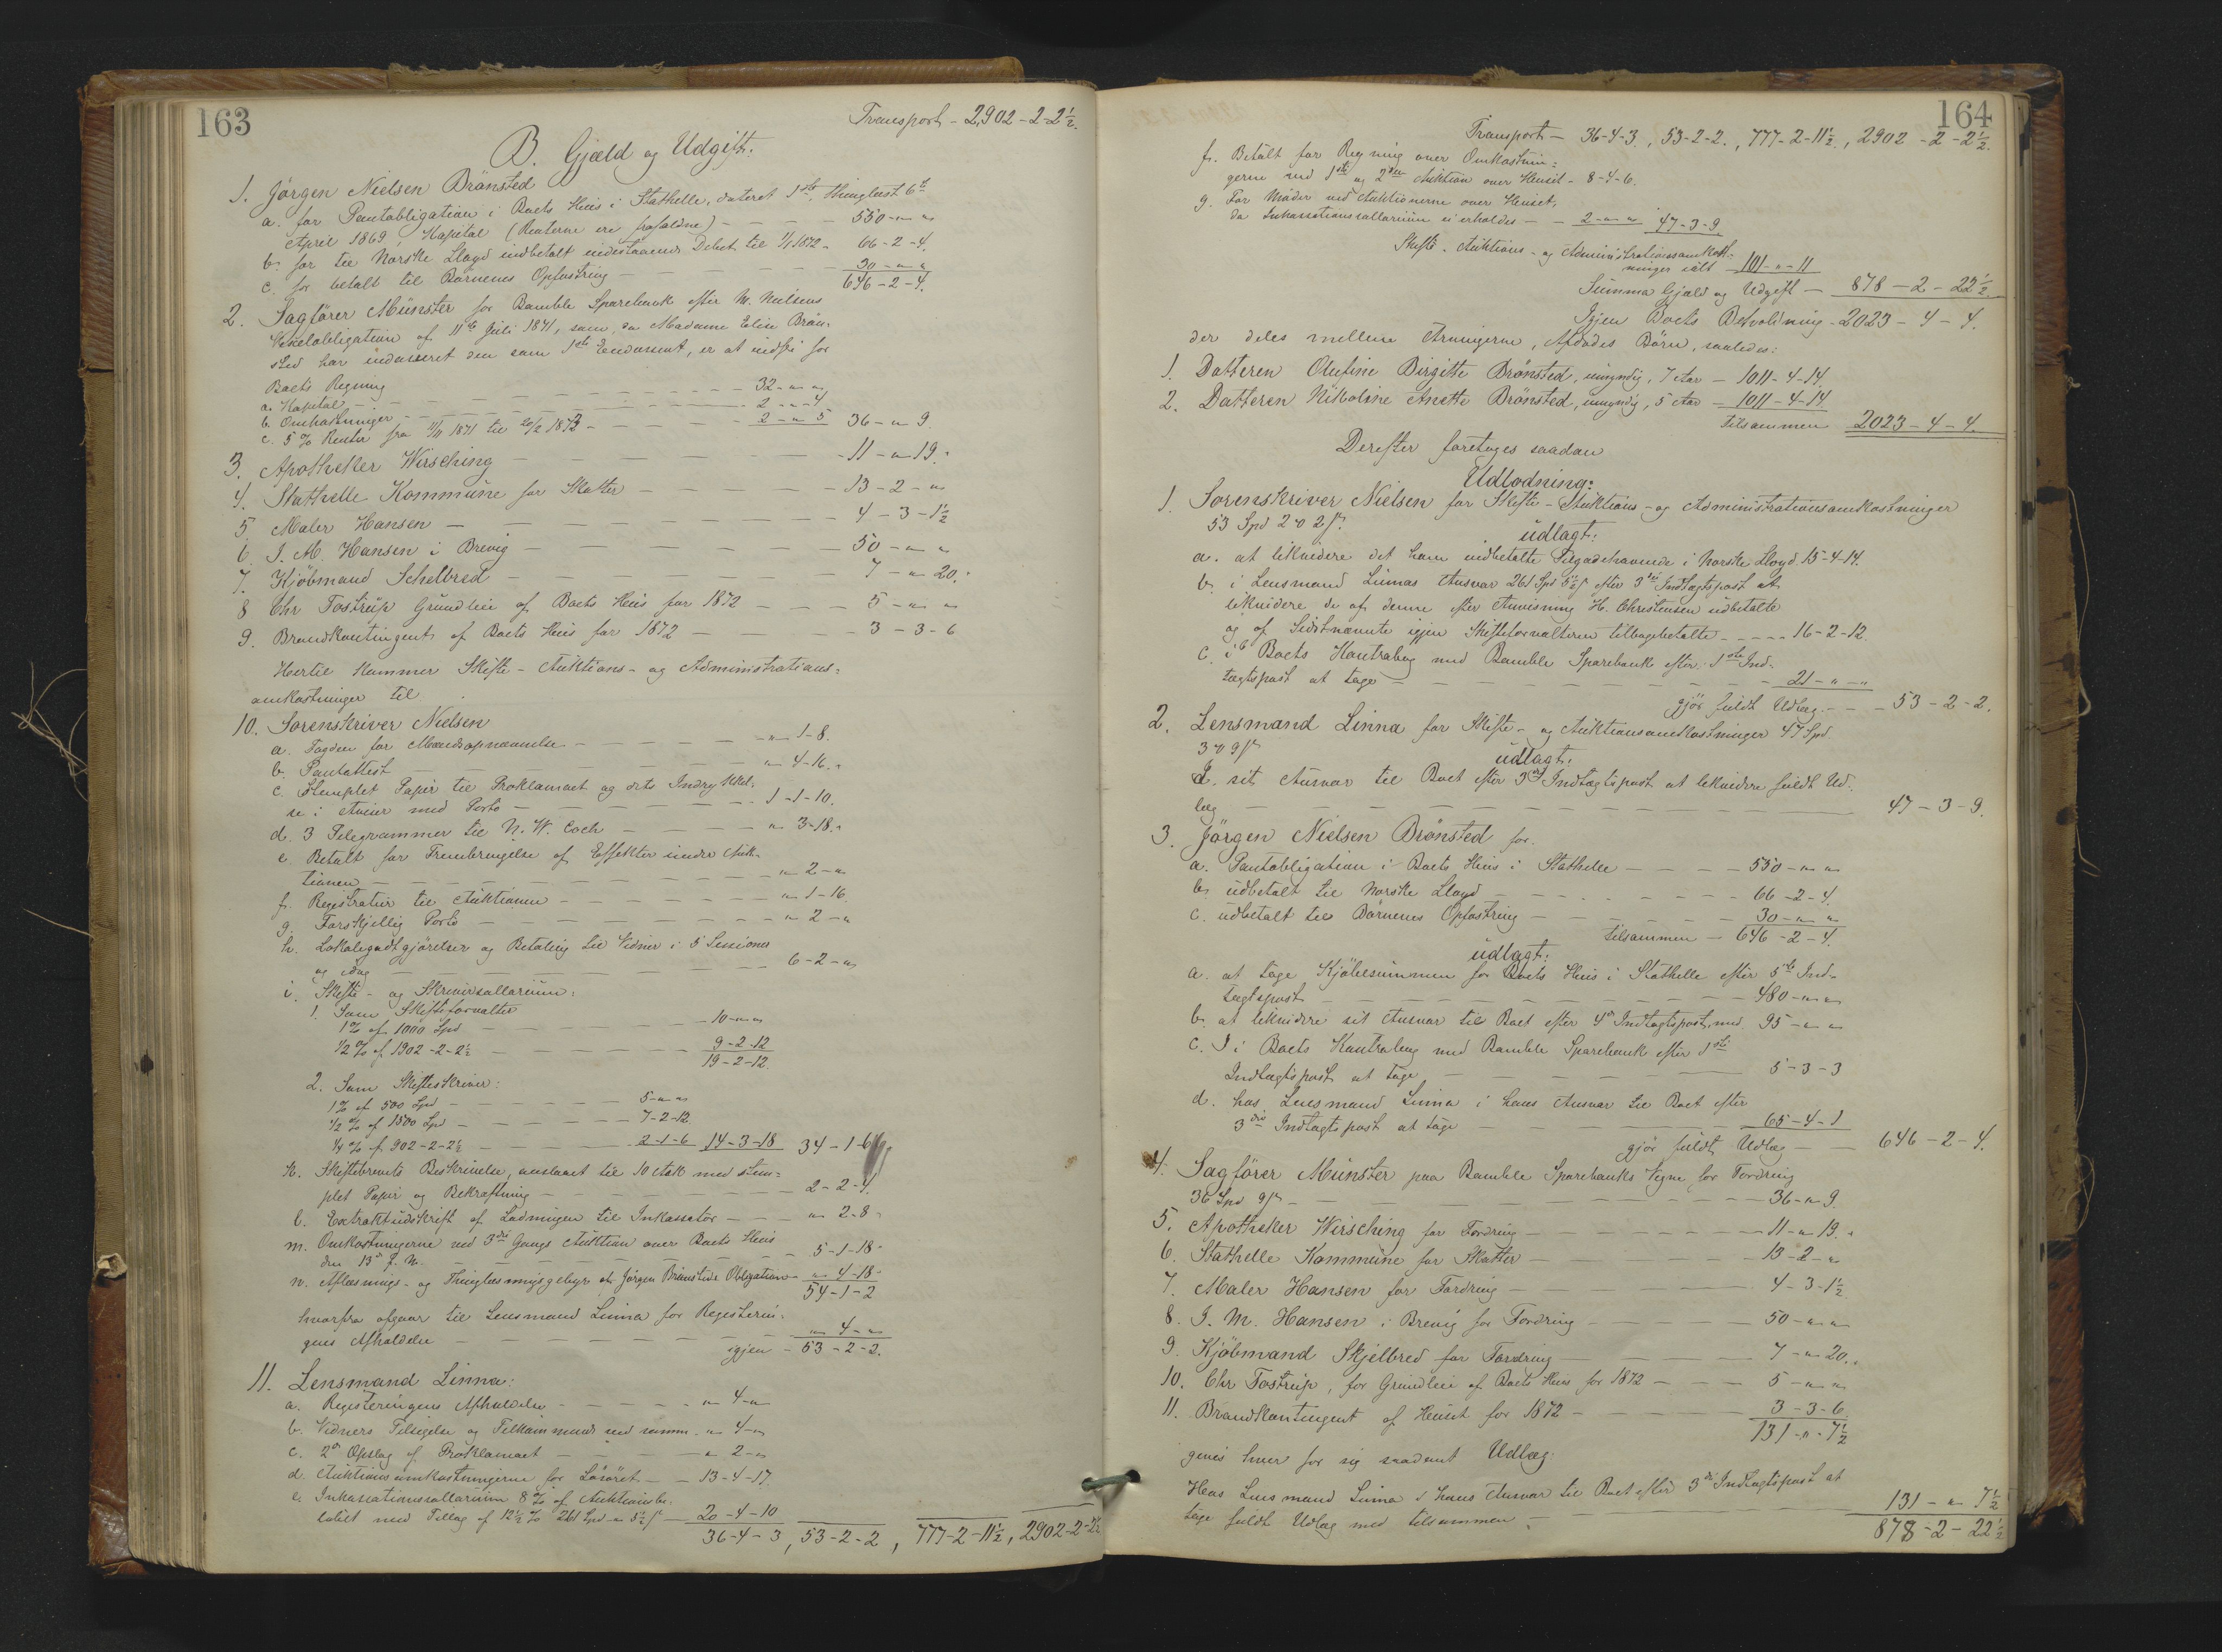 163
Transport - 2,902 - 2 - 2½.
B. Gjæld og Udgift.
1. Jörgen Nielsen Brönsted
a. for Pantobligation i Boets Huus i Stathelle, dateret 1ste, thinglæst 6te
April 1869, Kapital (Renterne ere frafaldne) - 550 - " "
b. for til Norske Lloyd indbetalt indestaaende Debet til 1/1 1872 - 66 - 2 - 4.
c. for betalt til Börnenes Opfostring - 30 - " "
646 - 2 - 4.
2. Sagförer Münster for Bamble Sparebank efter M. Nielsens
Vexelobligation af 11te Juli 1871, som, da Madame Elise Brön-
sted har endosseret den som 1ste Endossent, er at indfri for
Boets Regning
a. Kapital - 32 - " "
b. Omkostninger - 2 - " - 4
c. 5 % Renter fra 11/11 1871 til 20/2 1873 - 2 - " 5 36 - " 9.
3. Apotheker Wirsching - 11 - " 19.
4. Stathelle Kommune for Skatter - 13 - 2 - "
5 Maler Hansen - 4 - 3 - 1½
6. I. M. Hansen i Brevig - 50 - " "
7. Kjöbmand Schelbred - 7 - " 20.
8 Chr Tostrup Grundleie af Boets Huus for 1872 - 5 - " "
9. Brandkontingent af Boets Huus for 1872 - 3 - 3 - 6
Hertil kommer Skifte - Auktions - og Administrations-
omkostninger til
10. Sorenskriver Nielsen
a. Fogden for Mændsopnævnelse - " 1 - 8.
b. Pantattest - " 4 - 16.
c. Stemplet Papir til Proklamaet og dets Indrykkel-
se i Aviser med Porto - 1 - 1 - 10.
d. 3 Telegrammer til N. W. Coch - " 3 - 18.
e. Betalt for Frembringelse af Effekter under Auk-
tionen - " 2 - "
f. Registratur til Auktionen - " 1 - 16.
g. Forskjellig Porto - " 2 - "
h. Lokalegodtgjörelser og Betaling til Vidner i 5 Sessioner
og idag - 6 - 2 - "
i. Skifte - og Skriversallarium:
1. Som Skifteforvalter
1% af 1000 Spd - 10 - " "
½ % af 1902 - 2 - 2½ - 9 - 2 - 12
19 - 2 - 12.
2. Som Skifteskriver:
1% af 500 Spd - 5 - " "
½ % af 1500 Spd - 7 - 2 - 12
¼ % af 902 - 2 - 2½ - 2 - 1 - 6 14 - 3 - 18 34 - 1 - 6
k. Skiftebrevets Beskrivelse, anslaaet til 10 Ark med stem-
plet Papir og Bekræftning - 2 - 2 - 4.
l. Extraktudskrift af Lodningen til Inkassator - " 2 - 8
m. Omkostningerne ved 3die Gangs Auktion over Boets Huus
den 13de f. M. - 5 - 1 - 18
n. Aflæsnings - og Thinglæsningsgebyr af Jörgen Brönsteds Obligation - " 4 - 18
54 - 1 - 2
hvorfra afgaar til Lensmand Linna for Registerin-
gens Afholdelse - " 4 - "
igjen - 53 - 2 - 2.
11. Lensmand Linna:
a. Registeringens Afholdelse - " 4 - "
b. Vidners Tilsigelse og Tilkommende ved samme - " 4 - "
c. 2de Opslag af Proklamaet - " 2 - "
d. Auktionsomkostningerne for Lösöret - 13 - 4 - 17
e. Inkassationssallarium 8 % af Auktionsbe-
löbet med Tillæg af 12½ % 261 Spd " 5½ s - 20 - 4 - 10
36 - 4 - 3, 53 - 2 - 2, 777 - 2 - 11½, 2902 - 2 - 2½
164
Transport - 36 - 4 - 3., 53 - 2 - 2., 777 - 2 - 11½., 2902 - 2 - 2½.
f. Betalt for Regning over Omkostnin-
gerne ved 1ste og 2den Auktion over Huset - 8 - 4 - 6.
g. For Möder ved Auktionerne over Huset,
da Inkassationssallarium ei erholdes - 2 - " " 47 - 3 - 9
Skifte - Auktions - og Administrationsomkost-
ninger ialt - 101 - " - 11
Summa Gjæld og Udgift - 878 - 2 - 22½
Igjen Boets Beholdning - 2023 - 4 - 4.
der deles mellem Arvingerne, Afdödes Börn, saaledes:
1. Datteren Olufine Birgitte Brönsted, umyndig, 7 Aar - 1011 - 4 - 14.
2. Datteren Nikoline Anette Brönsted, umyndig, 5 Aar - 1011 - 4 - 14
tilsammen 2023 - 4 - 4.
Derefter foretages saadan
Udlodning:
1. Sorenskriver Nielsen for Skifte - Auktions - og Administrationsomkostninger
53 Spd 2 o 2 s.
udlagt:
a. at likvidere det ham indbetalte Tilgodehavende i Norske Lloyd. 15 - 4 - 14.
b. i Lensmand Linnas Ansvar 261 Spd 5½ s efter 3die Indtægtspost at
likvidere de af denne efter Anvisning H. Christensen udbetalte
og af Sidstnævnte igjen Skifteforvalteren tilbagebetalte - 16 - 2 - 12.
c. i Boets Kontrabog med Bamble Sparebank efter 1ste Ind-
tægtspost at tage - 21 - " - "
gjör fuldt Udlæg - 53 - 2 - 2.
2. Lensmand Linna for Skifte - og Auktionsomkostninger 47 Spd
3 o 9 s
udlagt:
I sit Ansvar til Boet efter 3die Indtægtspost at likvidere fuldt Ud-
læg - 47 - 3 - 9.
3. Jörgen Nielsen Brönsted for
a. Pantobligation i Boets Huus i Stathelle - 550 - " "
b. udbetalt til Norske Lloyd - 66 - 2 - 4.
c. udbetalt til Börnenes Opfostring - 30 - " "
tilsammen - 646 - 2 - 4.
udlagt:
a. at tage Kjöbesummen for Boets Huus i Stathelle efter 5te Ind-
tægtspost - 480 - " "
b. at likvidere sit Ansvar til Boet efter 4de Indtægtspost, med 95 - " "
c. I i Boets Kontrabog med Bamble Sparebank efter 1ste
Indtægtspost at tage - 5 - 3 - 3
d. hos Lensmand Linna i hans Ansvar til Boet efter
3die Indtægtspost at tage - 65 - 4 - 1
gjör fuldt Udlæg - 646 - 2 - 4.
4. Sagförer Münster paa Bamble Sparebanks Vegne for Fordring
36 Spd 9 s - 36 - " 9.
5. Apotheker Wirsching for Fordring - 11 - " 19.
6. Stathelle Kommune for Skatter - 13 - 2 - "
7. Maler Hansen for Fordring - 4 - 3 - 1½
8. I. M. Hansen i Brevig for Fordring - 50 - " "
9. Kjöbmand Skjelbred for Fordring - 7 - " 20.
10. Chr Tostrup, for Grundleie af Boets Huus for 1872 - 5 - " "
11. Brandkontingent af Huset for 1872 - 3 - 3 - 6
131 - " - 7½
gives hver for sig saadant Udlæg:
Hos Lensmand Linna i hans Ansvar til Boet efter 3die Indtægtspost at
tage fuldt Udlæg med tilsammen - 131 - " 7½
878 - 2 - 22½